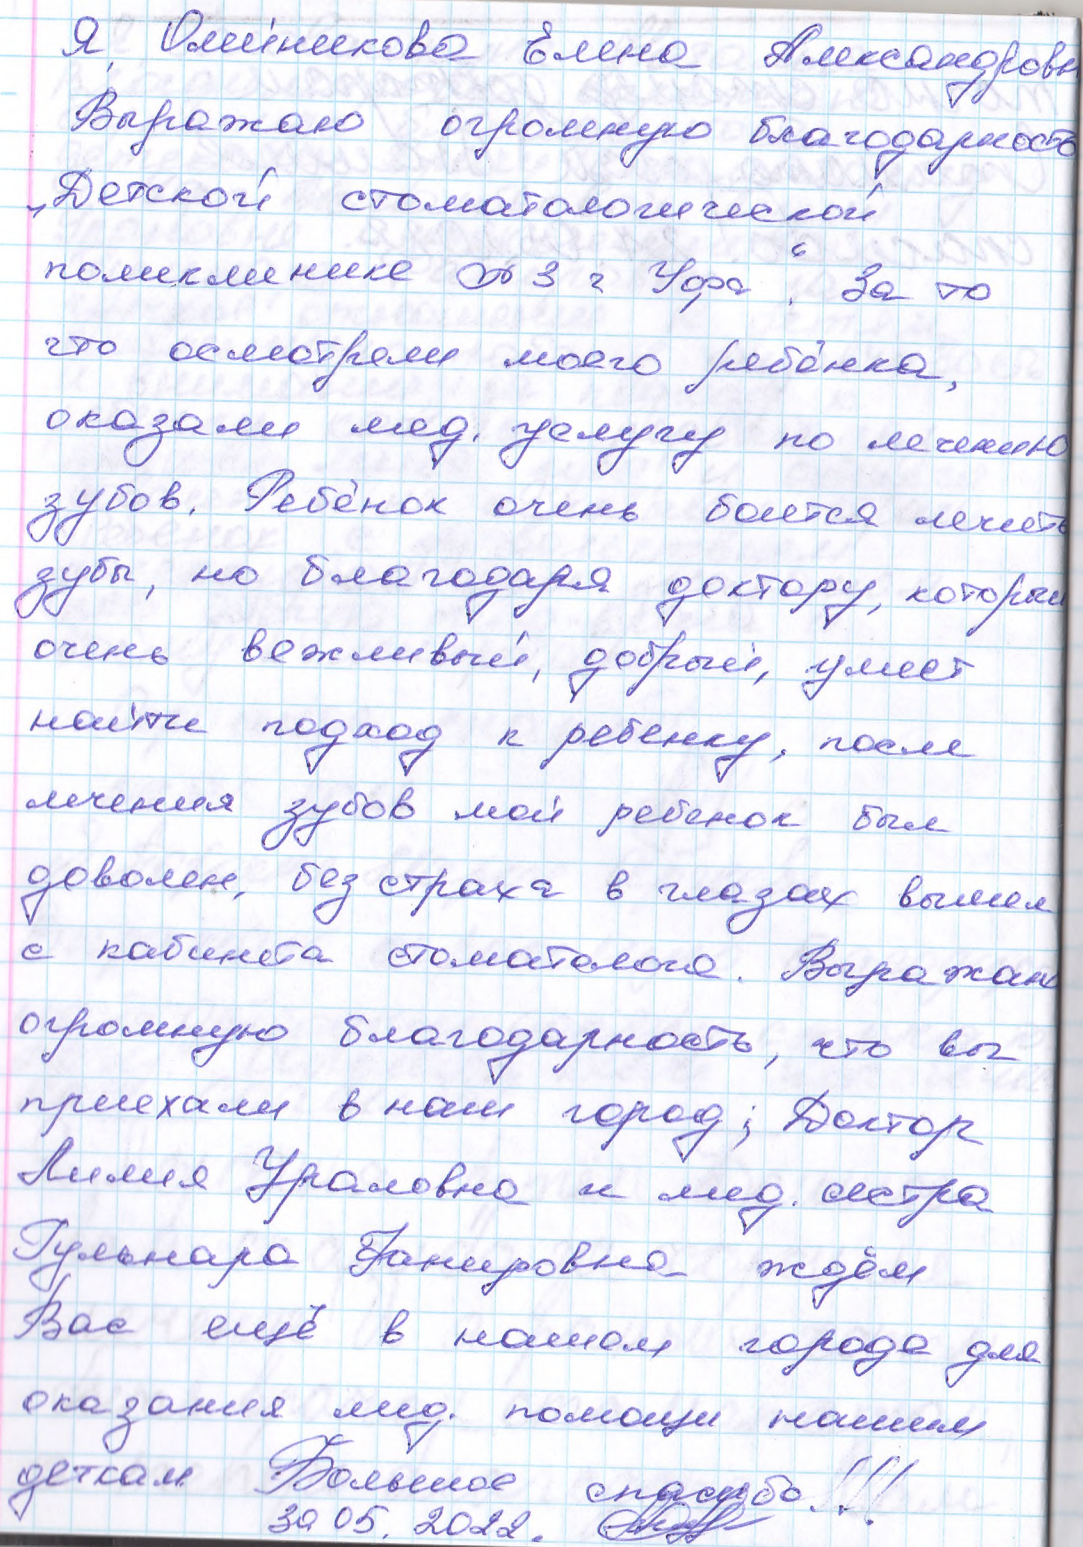 Я, Олейникова Елена Александровн
Выражаю огромную благодарность
„Детской стоматологической
поликлинике №3 г Уфа“. За то
что осмотрели моего ребёнка,
оказали мед. услугу по лечению
зубов. Ребёнок очень боится лечить
зубы, но благодаря доктору, который
очень вежливый, добрый, умеет
найти подход к ребенку, после
лечения зубов мой ребенок был
доволен, без страха в глазах вышел
с кабинета стоматолога. Выражаю
огромную благодарность, что вы
приехали в наш город; Доктор
Лилия Ураловна и мед. сестра
Гульнара Ганировна ждём
Вас ещё в нашем городе для
оказания мед. помощи нашим
деткам Большое спасибо!!!
30 05. 2022.